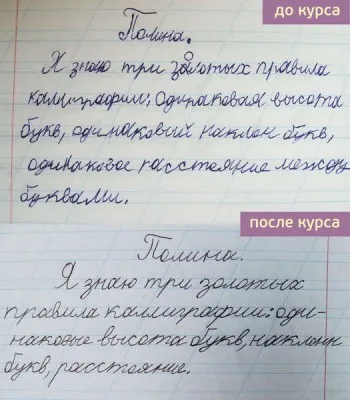 до курса
Полина.
Я знаю три золотых правила
каллиграфии: одинаковая высота
букв, одинаковый наклон букв,
одинаковое расстояние между
буквами.
после курса
Полина.
Я знаю три золотых
правила каллиграфии: оди-
наковые высота букв, наклон
букв, расстояние.